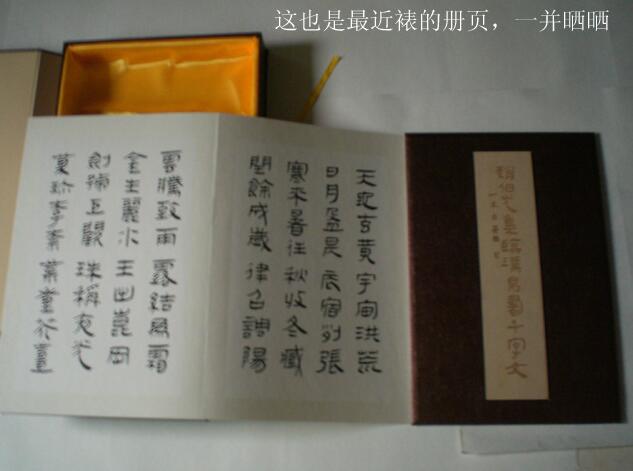 这也是最近裱的册页，一并晒晒
書千字文
天地玄黃宇宙洪荒
日月盈昃辰宿列張
寒來暑往秋收冬藏
閏餘成歲律召調陽
雲騰致雨露結為霜
金生麗水玉出崑岡
劍號巨闕珠稱夜光
菓珍李柰菜重芥薑